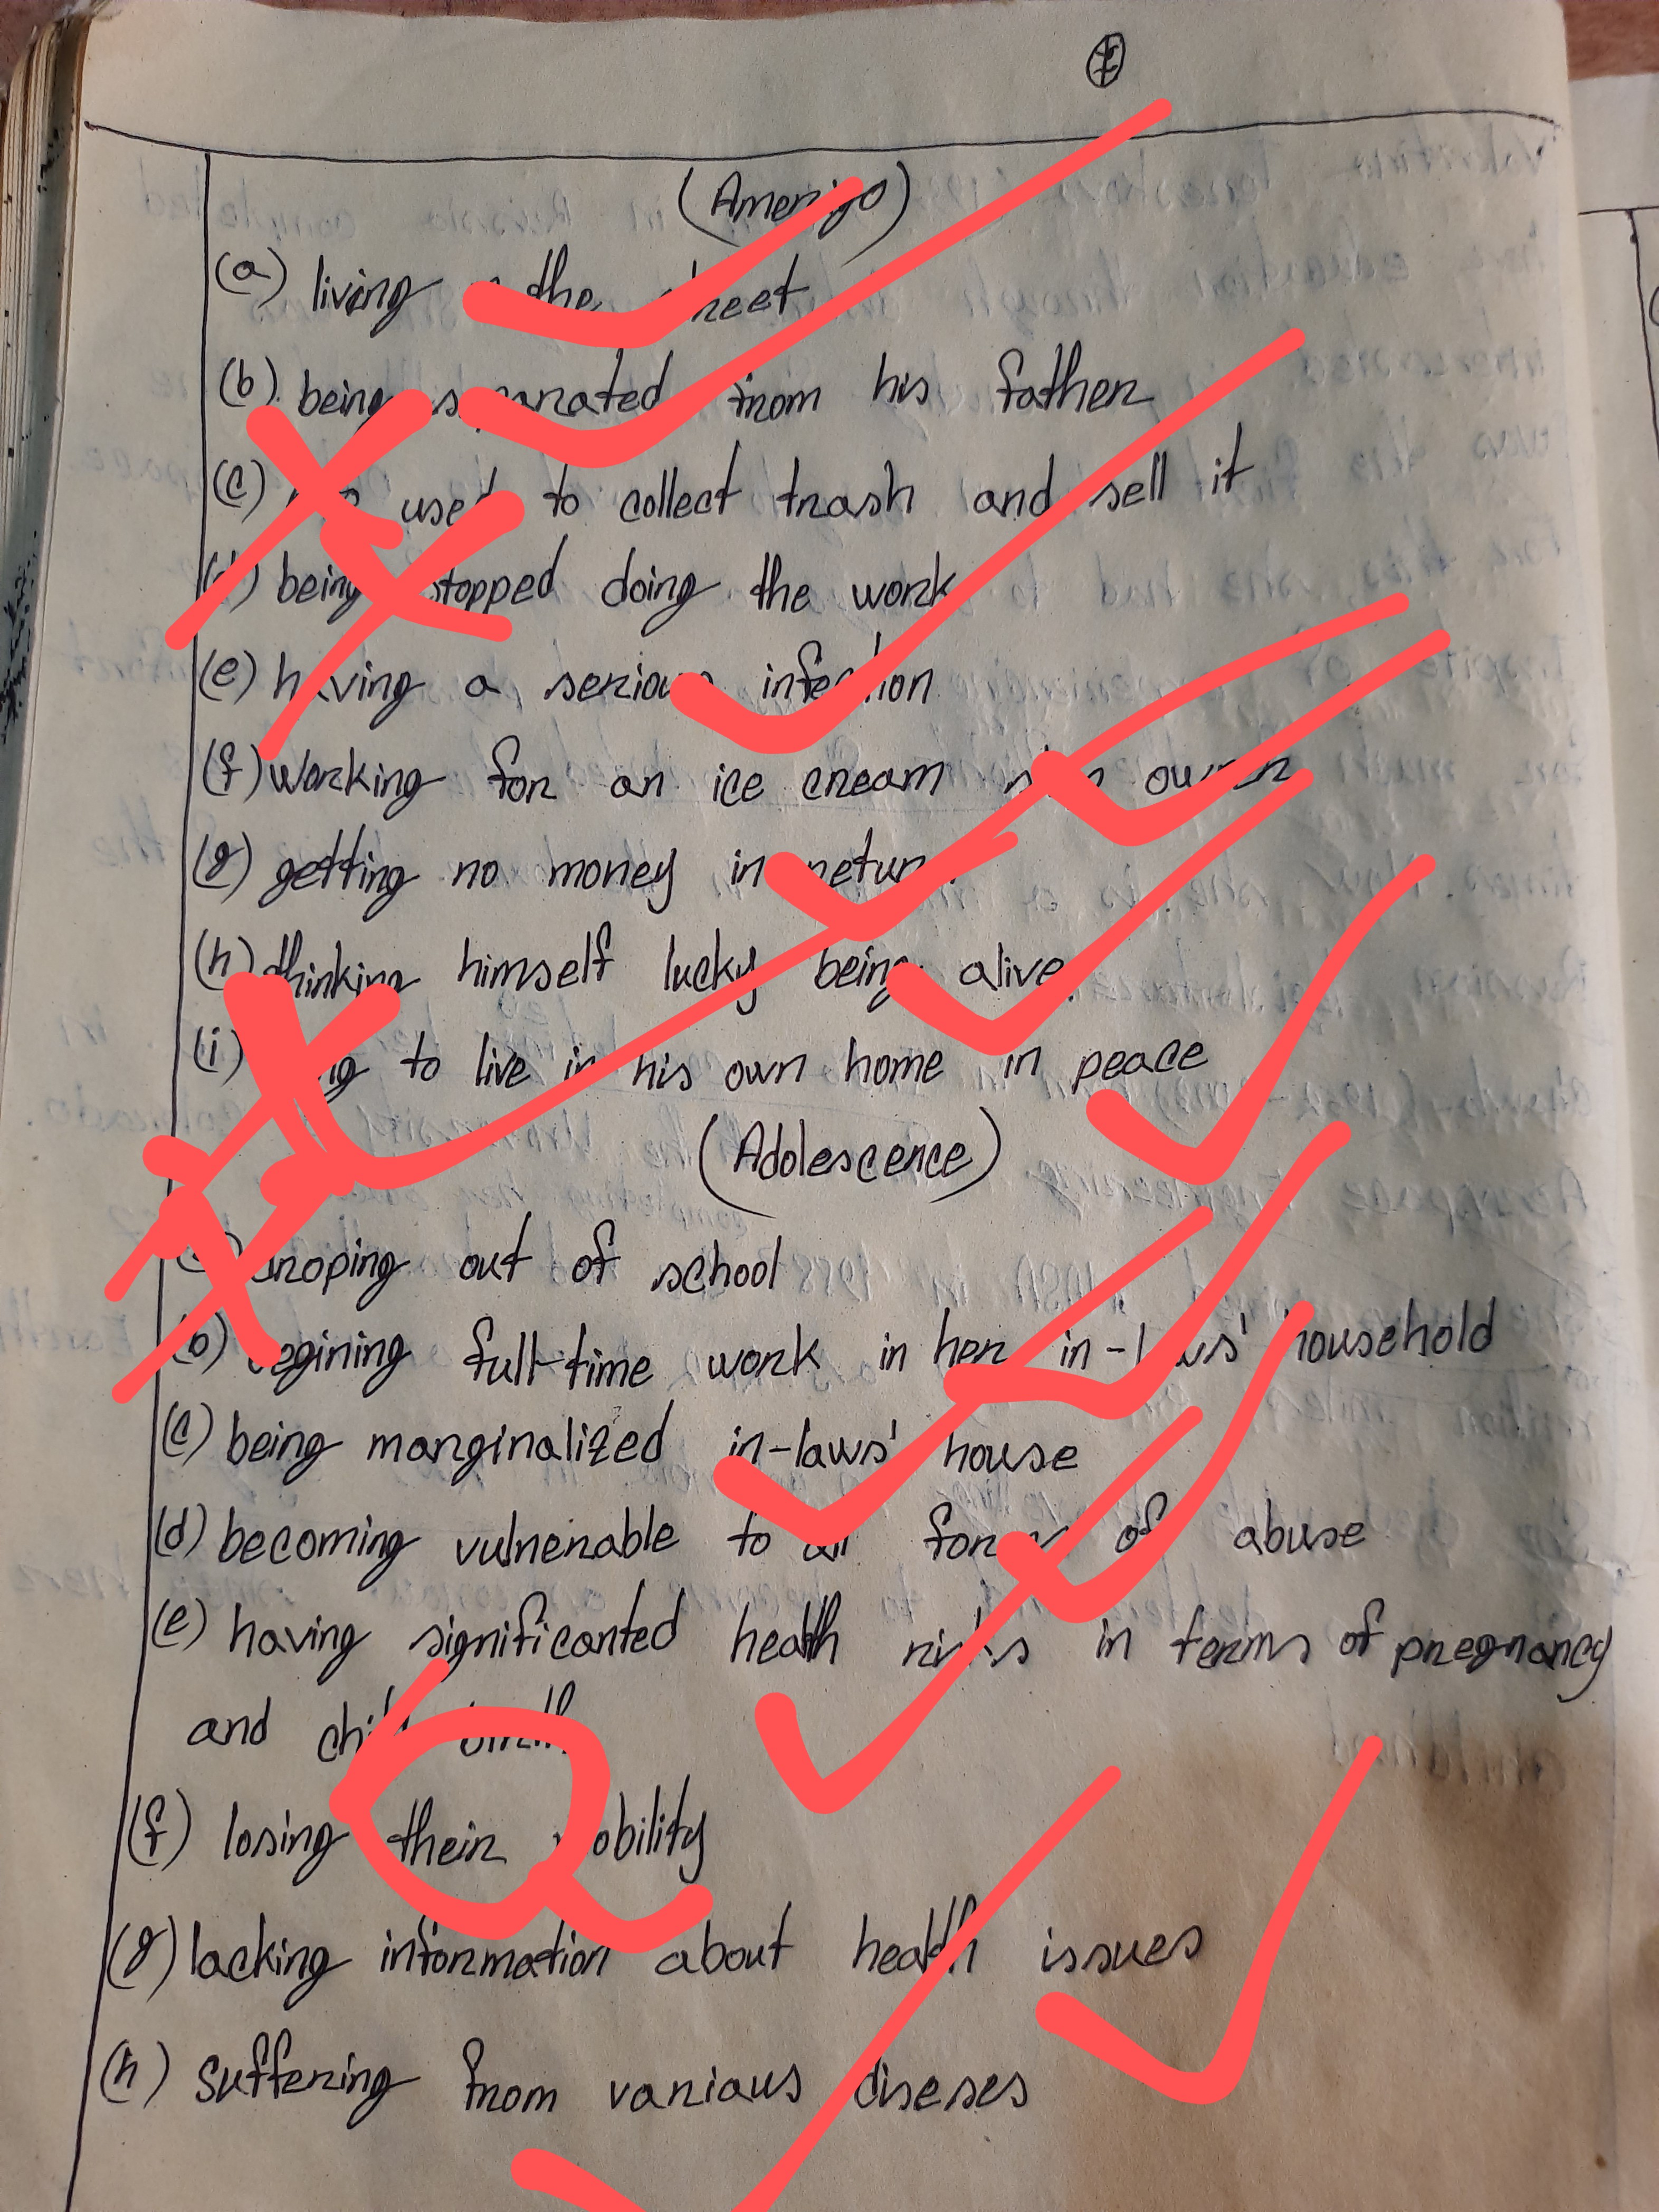 (Amerigo)
(a) living the street
(b) being separated from his father
(c) used to collect trash and sell it
(d) being stopped doing the work
(e) having a serious infection
(f) working for an ice cream owner
(g) getting no money in return
(h) thinking himself lucky being alive
(i) to live in his own home in peace
(Adolescence)
droping out of school
(b) begining full-time work in her in-laws' household
(c) being marginalized in-laws' house
(d) becoming vulnerable to all forms of abuse
(e) having significanted health risks in terms of pregnancy
and child birth
(f) losing their mobility
(g) lacking information about health issues
(h) suffering from various diseses